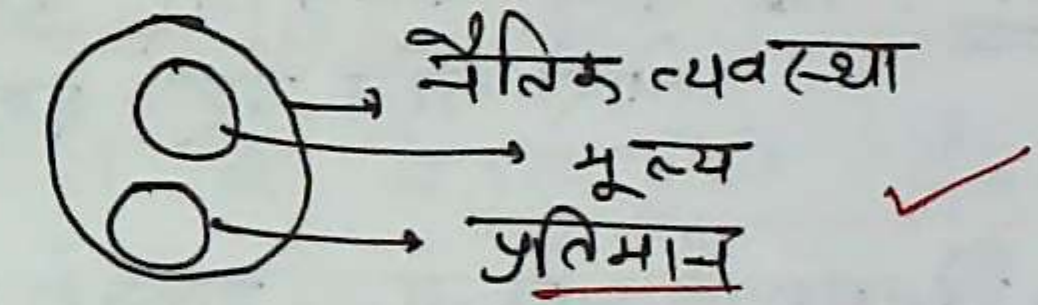 नैतिक व्यवस्था
मूल्य
प्रतिमान